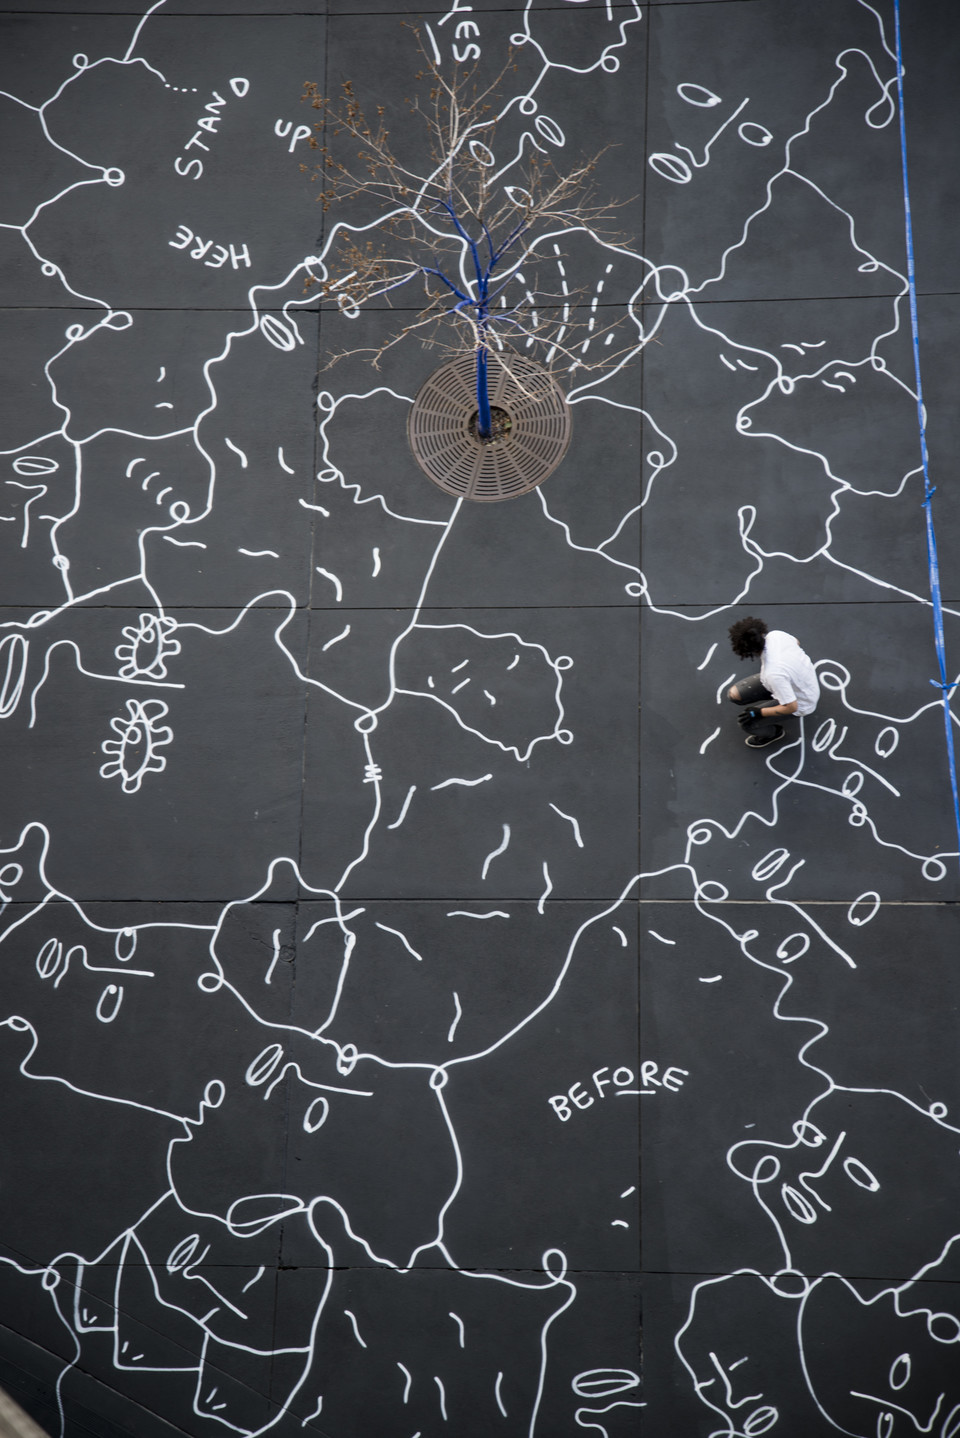 YES
STAND
UP
HERE
BEFORE